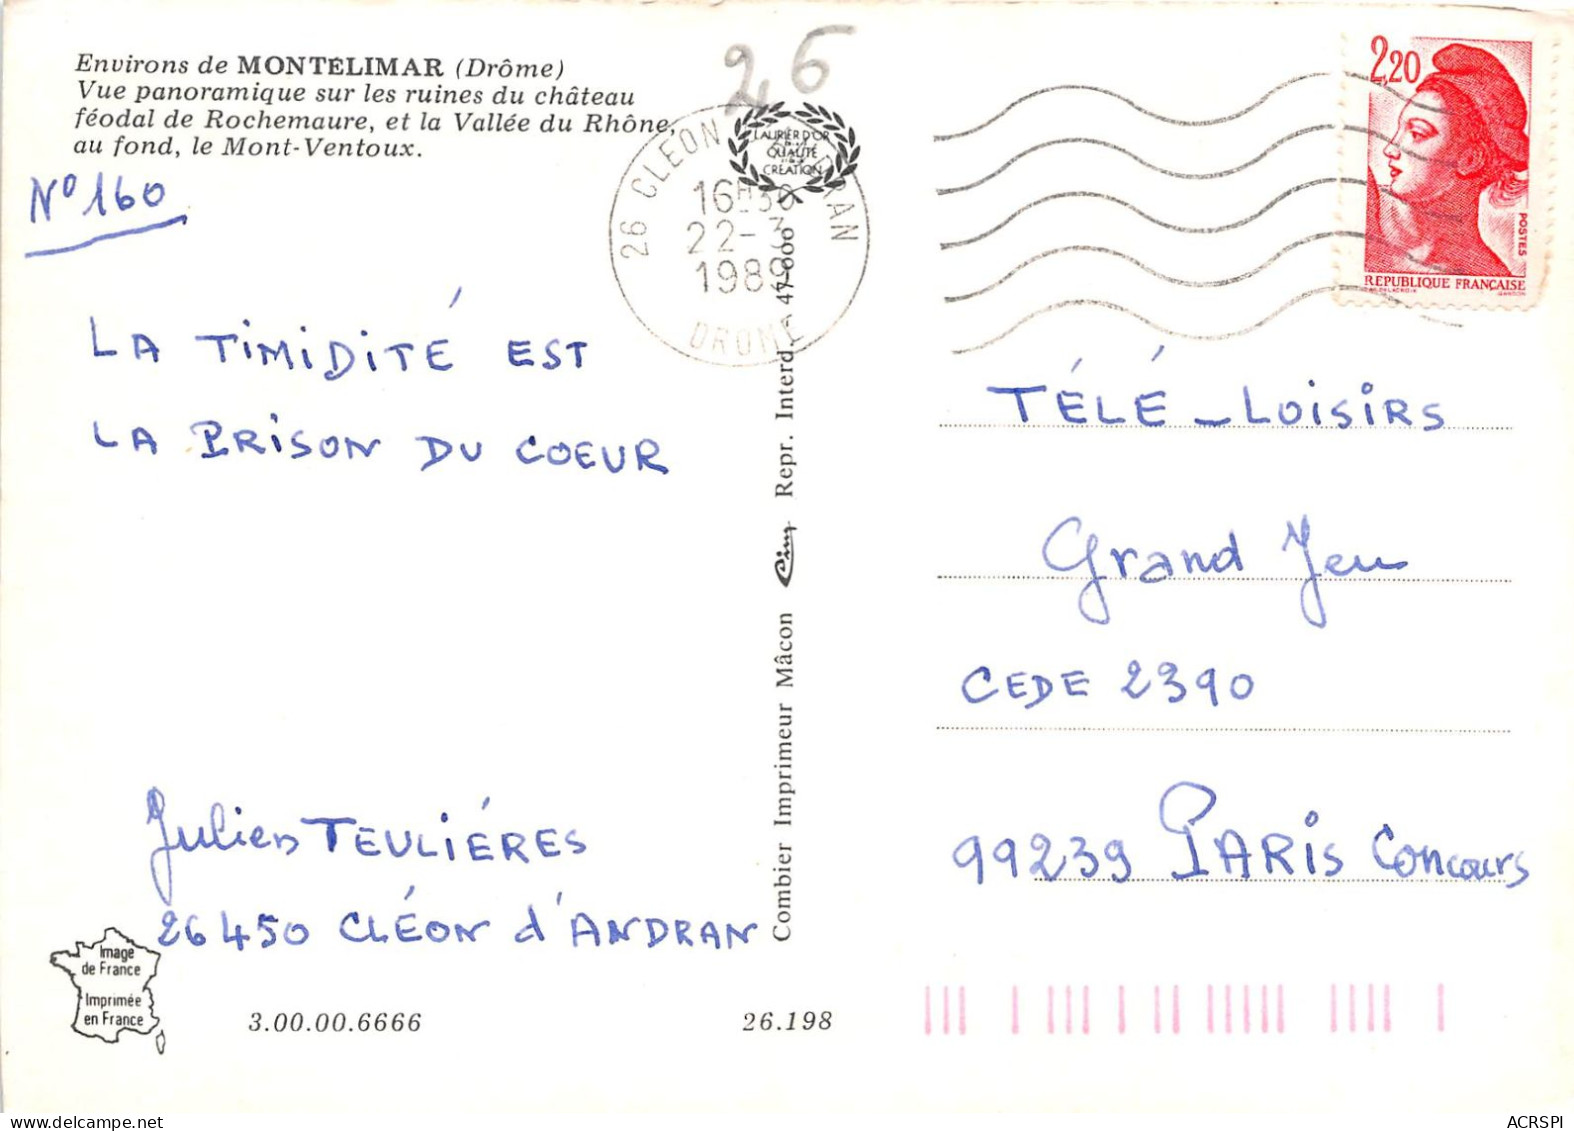 Environs de MONTÉLIMAR (Drôme)
Vue panoramique sur les ruines du château
féodal de Rochemaure, et la Vallée du Rhône,
au fond, le Mont-Ventoux.
N° 160
26
LAURIER D'OR
DE LA
QUALITÉ
CRÉATION
26 CLEON RAN
16H30
22-3
1989
DROME
2,20
POSTES
REPUBLIQUE FRANÇAISE
LA TIMIDITÉ EST
LA PRISON DU COEUR
Julien TEULIÉRES
26450 CLÉON d'ANDRAN
Image
de France
Imprimée
en France
3.00.00.6666
26.198
Combier Imprimeur Mâcon Cim Repr. Interd. A 47-000
TÉLÉ-LOISIRS
Grand Jeu
CEDE 2390
99239 PARIS Concours
ACRSPI